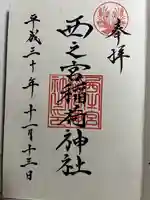 奉拝
西之宮稲荷神社
平成三十年十一月十三日